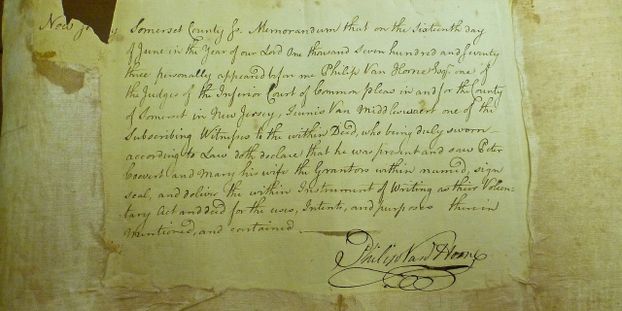 New Jersey Somerset County ss. Memorandum that on the Sixteenth day
of June in the Year of our Lord One thousand Seven hundred and Seventy
three personally appeared before me Philip Van Horne Esqr. one of
the Judges of the Inferior Court of Common pleas in and for the County
of Somerset in New Jersey, Teunis Van Middleswaert one of the
Subscribing Witnesses to the within Deed, who being duly sworn
according to Law doth declare that he was present and saw Peter
Coevert and Mary his wife the Grantors within named, sign
seal, and deliver the within Instrument of Writing as their Volun-
tary Act and deed for the uses, Intents, and purposes therein
Mentioned, and contained
Philip Van Horne